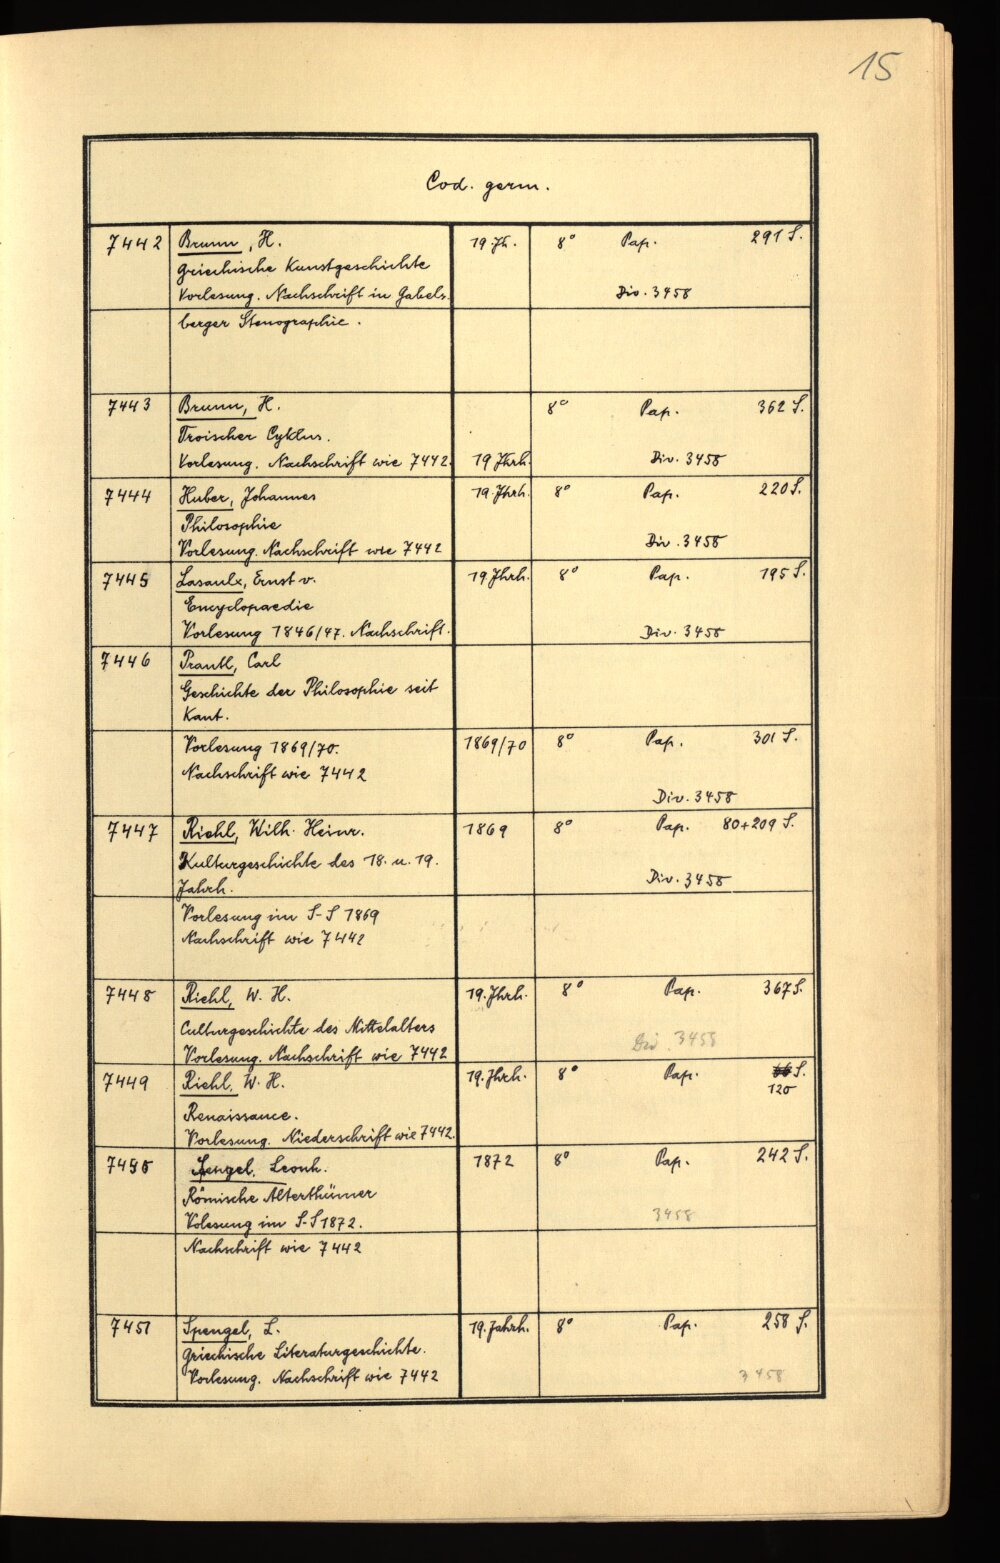 15
Cod. germ.
7442 Brunn, H. 19. Jh. 8° Pap. 291 S.
Griechische Kunstgeschichte
Vorlesung. Nachschrift in Gabels- Div. 3458
berger Stenographie.
7443 Brunn, H. 8° Pap. 362 S.
Troischer Cyklus.
Vorlesung. Nachschrift wie 7442. 19 Jhrh. Div. 3458
7444 Huber, Johannes 19. Jhrh. 8° Pap. 220 S.
Philosophie
Vorlesung. Nachschrift wie 7442 Div. 3458
7445 Lasaulx, Ernst v. 19. Jhrh. 8° Pap. 195 S.
Encyclopaedie
Vorlesung 1846/47. Nachschrift. Div. 3458
7446 Prantl, Carl
Geschichte der Philosophie seit
Kant.
Vorlesung 1869/70. 1869/70 8° Pap. 301 S.
Nachschrift wie 7442
Div. 3458
7447 Riehl, Wilh. Heinr. 1869 8° Pap. 80+209 S.
Kulturgeschichte des 18. u. 19.
Jahrh. Div. 3458
Vorlesung im S-S 1869
Nachschrift wie 7442
7448 Riehl, W. H. 19. Jhrh. 8° Pap. 367 S.
Culturgeschichte des Mittelalters Div. 3458
Vorlesung. Nachschrift wie 7442
7449 Riehl, W. H. 19. Jhrh. 8° Pap. S.
120
Renaissance.
Vorlesung. Niederschrift wie 7442.
7450 Spengel, Leonh. 1872 8° Pap. 242 S.
Römische Alterthümer
Volesung im S-S 1872. 3458
Nachschrift wie 7442
7451 Spengel, L. 19. Jahrh. 8° Pap. 258 S.
Griechische Literaturgeschichte.
Vorlesung. Nachschrift wie 7442 3458